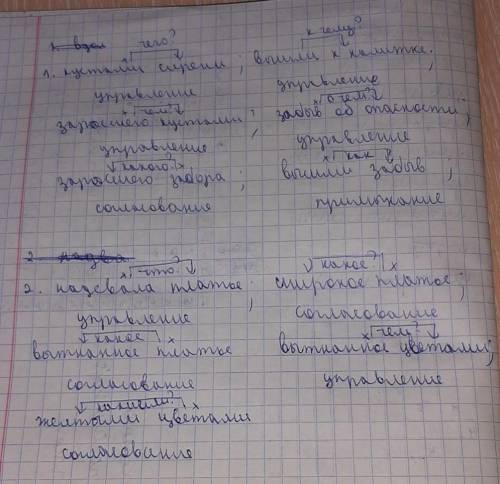 чего? к чему?
1. кустами сирени; вышли к калитке.
управление управление
чем? о чем?
заросшего кустами; забыв об опасности;
управление управление
какого? как
заросшего забора; вышли забыв,
согласование примыкание
2
что? какое?
2. надевала платье; широкое платье;
управление согласование
какое чем?
вытканное платье вытканное цветами;
согласование управление
какими?
желтыми цветами
согласование